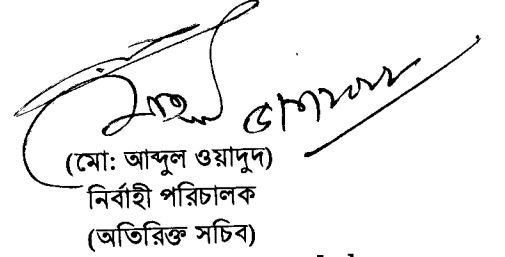 (মো: আব্দুল ওয়াদুদ)
নির্বাহী পরিচালক
(অতিরিক্ত সচিব)